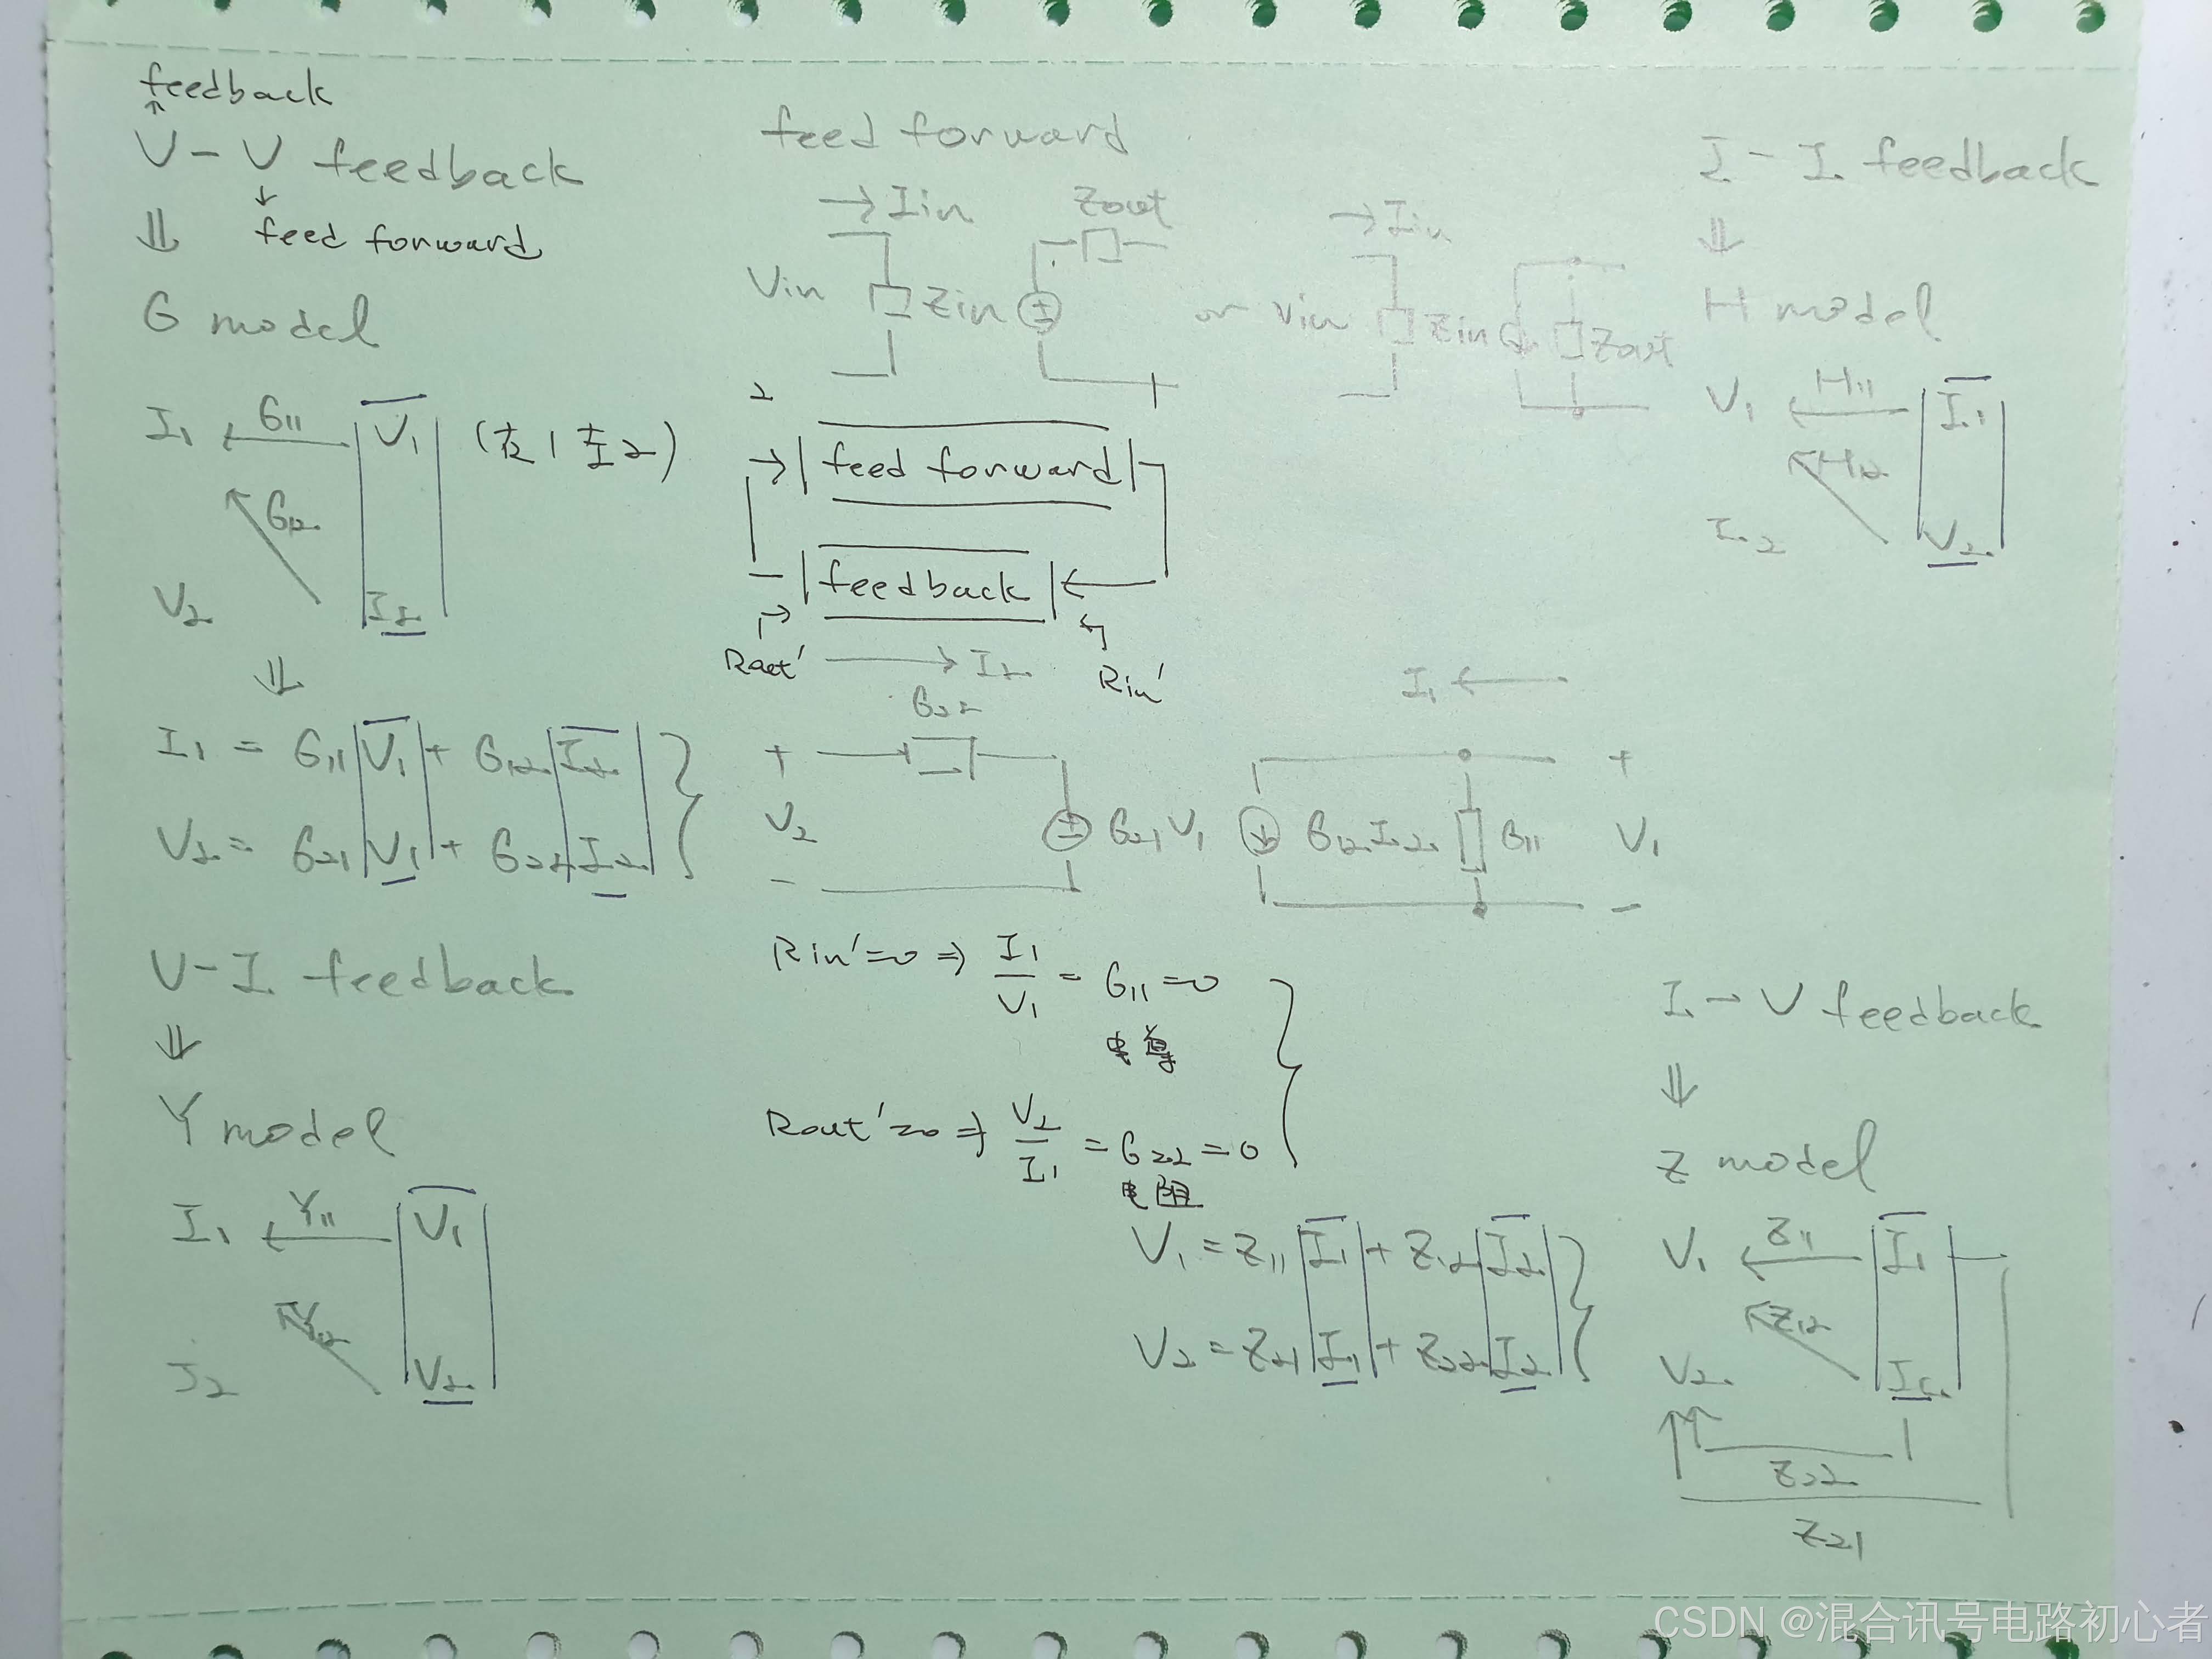 feedback
V-V feedback
feed forward
G model
I1 G11 V1 (右1左2)
G12
V2 I2
I1 = G11 V1 + G12 I2
V2 = G21 V1 + G22 I2
V-I feedback
Y model
I1 Y11 V1
Y12
I2 V2
feed forward
Iin Zout
Vin Zin
or
Iin
Vin Zin Zout
2 1
feed forward
feedback
Rout' Rin'
I2
G22
+
V2 G21 V1
-
I1
+
G12 I2 G11 V1
-
Rin'=∞ ⇒ I1/V1 = G11 = 0
电导
Rout'=0 ⇒ V2/I1 = G22 = 0
电阻
V1 = Z11 I1 + Z12 I2
V2 = Z21 I1 + Z22 I2
I-I feedback
H model
V1 H11 I1
H12
I2 V2
I-V feedback
Z model
V1 Z11 I1
Z12
V2 I2
Z22
Z21
CSDN @混合讯号电路初心者